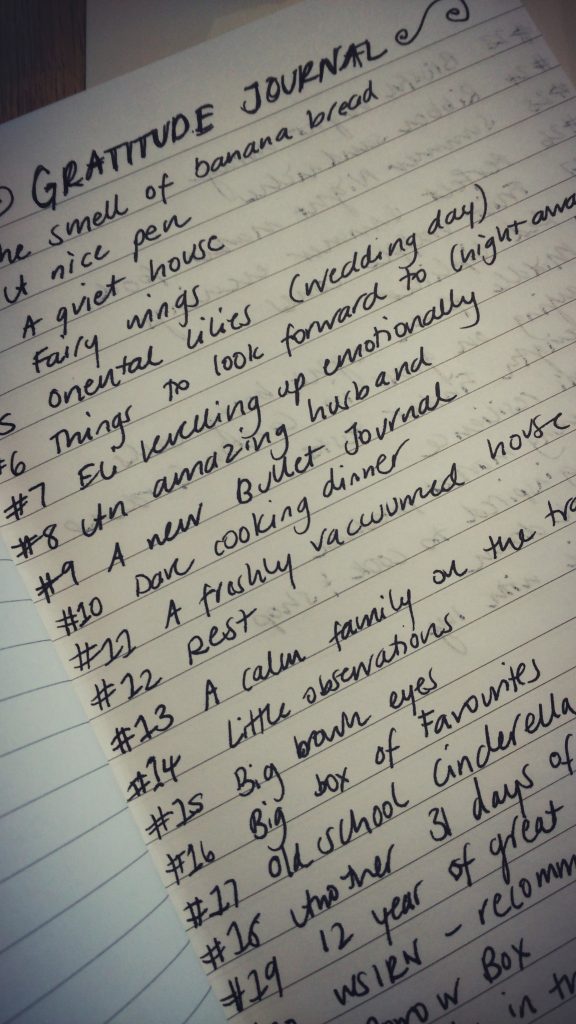 GRATITUDE JOURNAL
he smell of banana bread
A nice pen
A quiet house
Fairy wings
5 Oriental lilies (wedding day)
#6 Things to look forward to (night away
#7 Eli levelling up emotionally
#8 An amazing husband
#9 A new Bullet Journal
#10 Dave cooking dinner
#11 A freshly vacuumed house
#12 Rest
#13 A calm family on the tra
#14 Little observations.
#15 Big brown eyes
#16 Big box of Favourites
#17 Old school Cinderella
#18 Another 31 days of
#19 12 year of great
WSIRN - recomm
Box
in tr